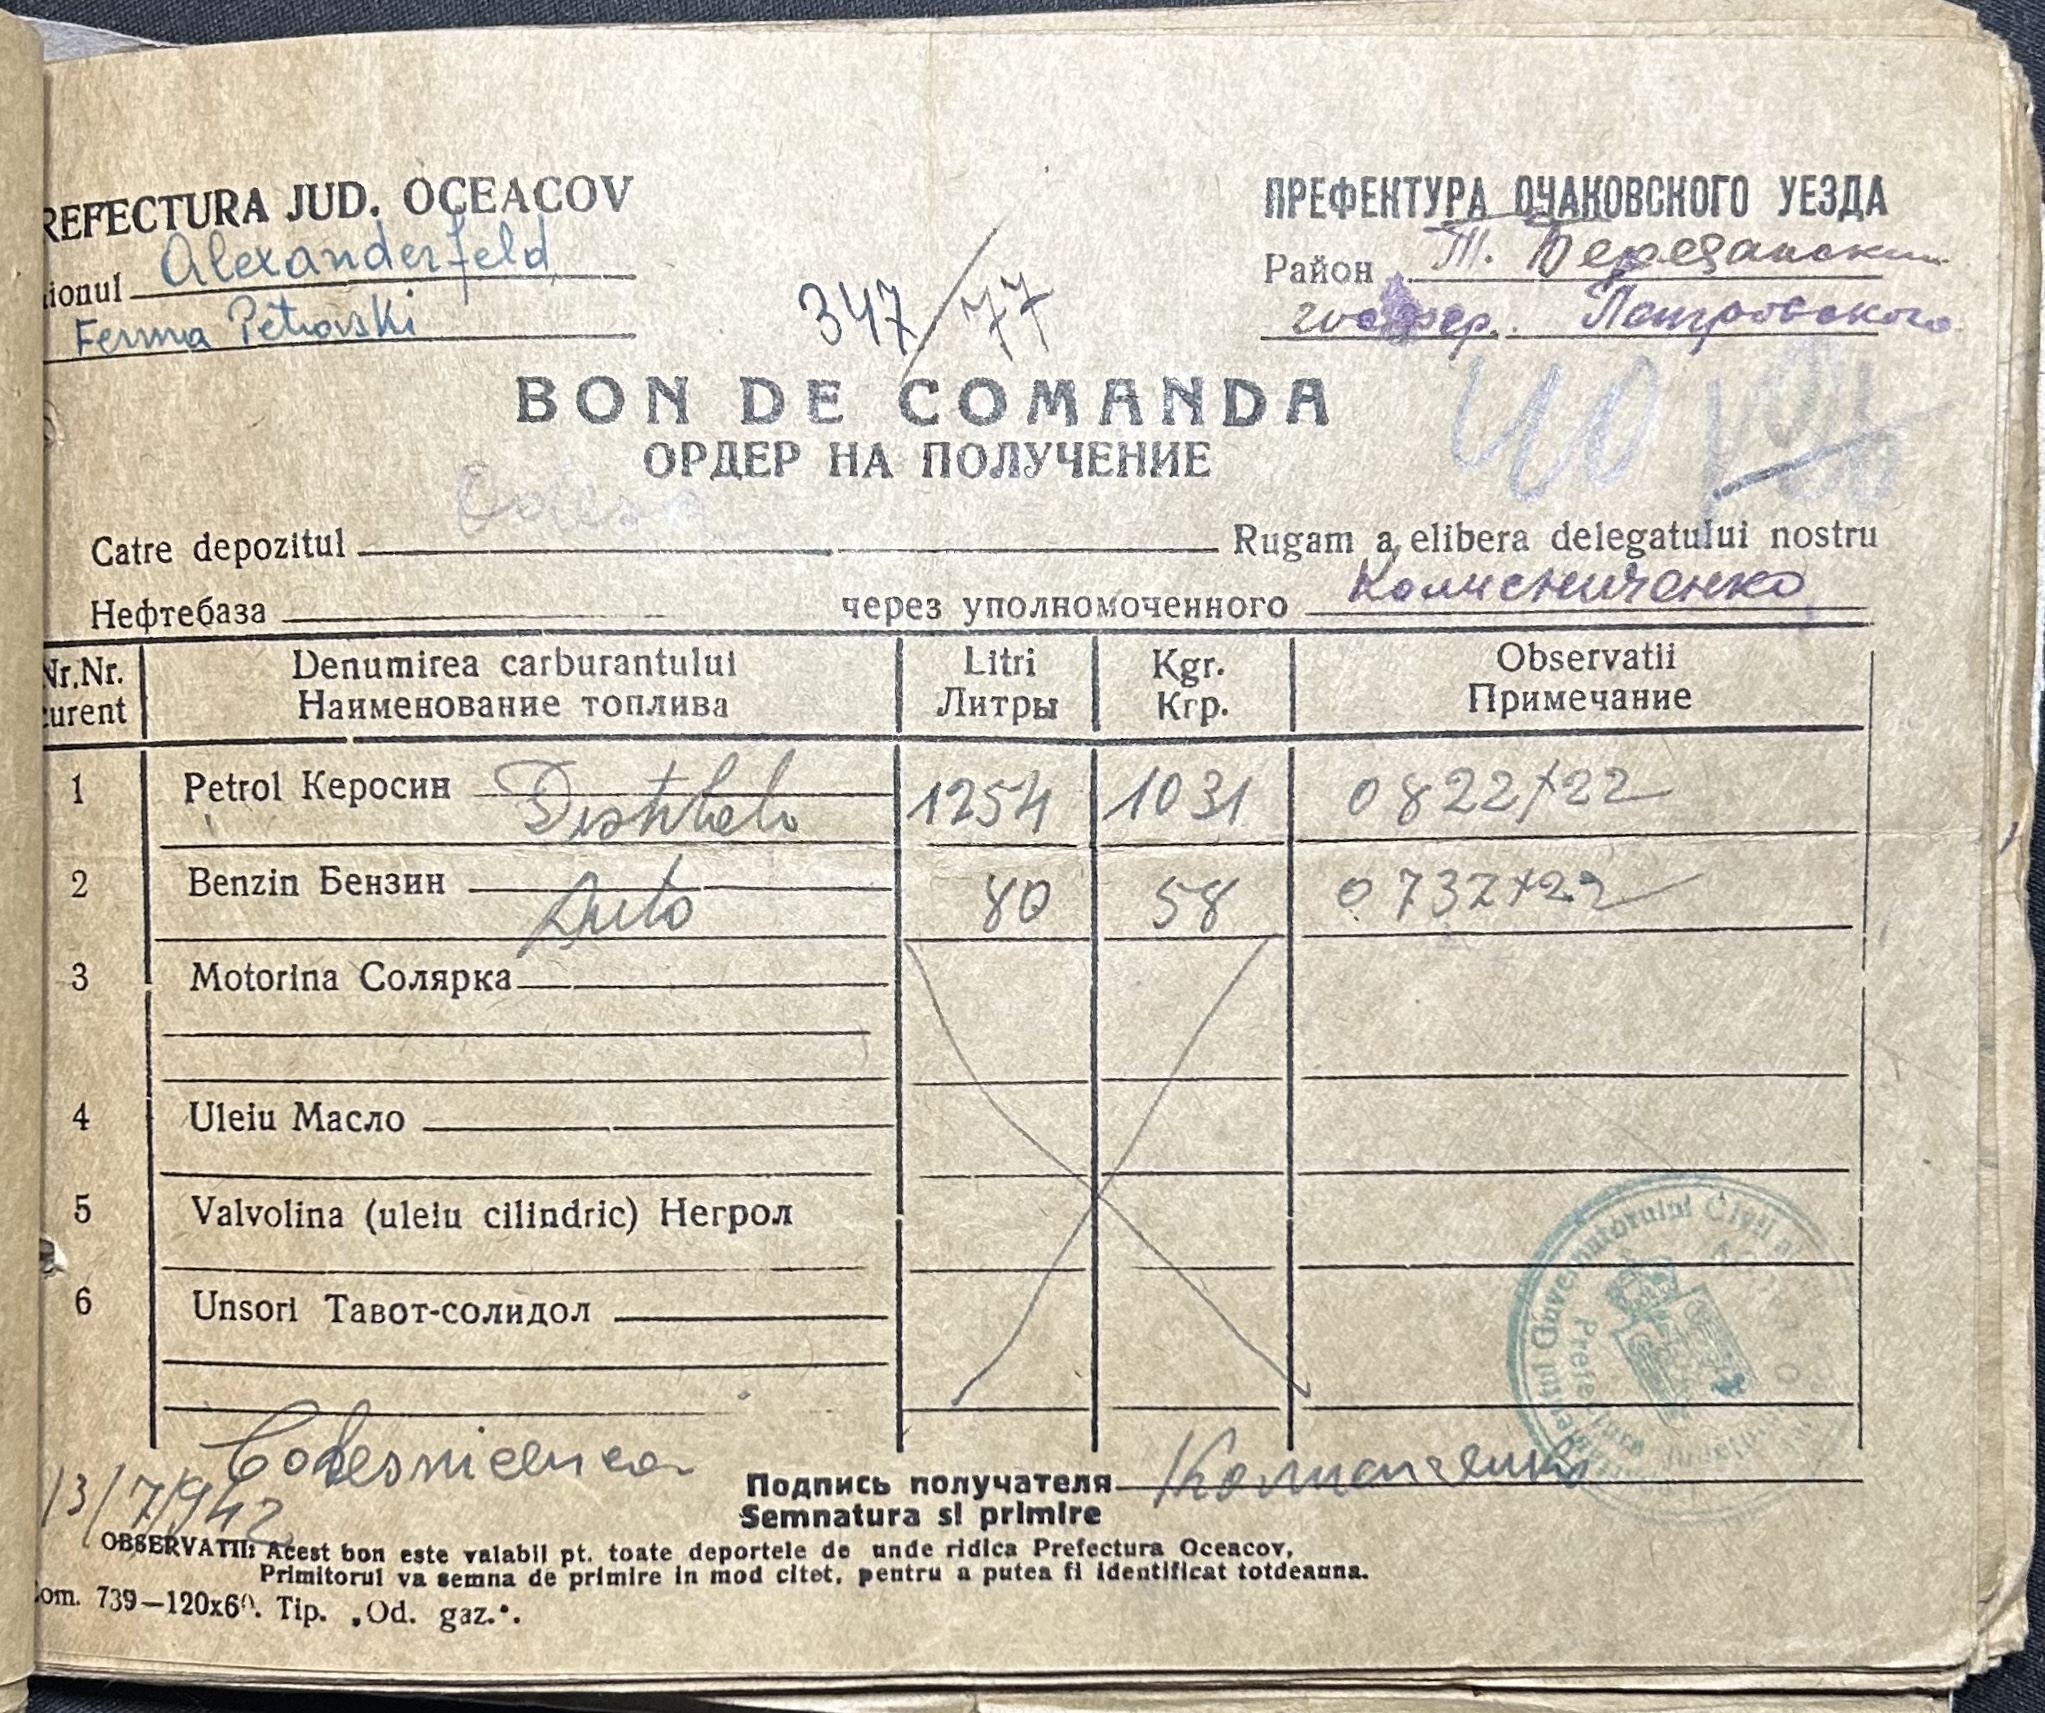 REFECTURA JUD. OCEACOV
ПРЕФЕКТУРА ОЧАКОВСКОГО УЕЗДА
ionul Alexanderfeld
Район Т. Березански
Ferma Petrovski
Петровского
347/77
BON DE COMANDA
40
ОРДЕР НА ПОЛУЧЕНИЕ
Catre depozitul Odesa Rugam a elibera delegatului nostru
Нефтебаза через уполномоченного Колисниченко
Nr.Nr. curent Denumirea carburantului Litri Kgr. Observatii
Наименование топлива Литры Кгр. Примечание
1 Petrol Керосин Distilato 1254 1031 0822+22
2 Benzin Бензин Auto 80 58 0737+22
3 Motorina Солярка
4 Uleiu Масло
5 Valvolina (uleiu cilindric) Негрол
6 Unsori Тавот-солидол
Colesnicenco
13/7/942
Подпись получателя
Semnatura si primire
Guvernatorului Civil al
Prefectura Județului
OBSERVATII: Acest bon este valabil pt. toate deportele de unde ridica Prefectura Oceacov,
Primitorul va semna de primire in mod citet, pentru a putea fi identificat totdeauna.
om. 739—120x60. Tip. „Od. gaz.“.